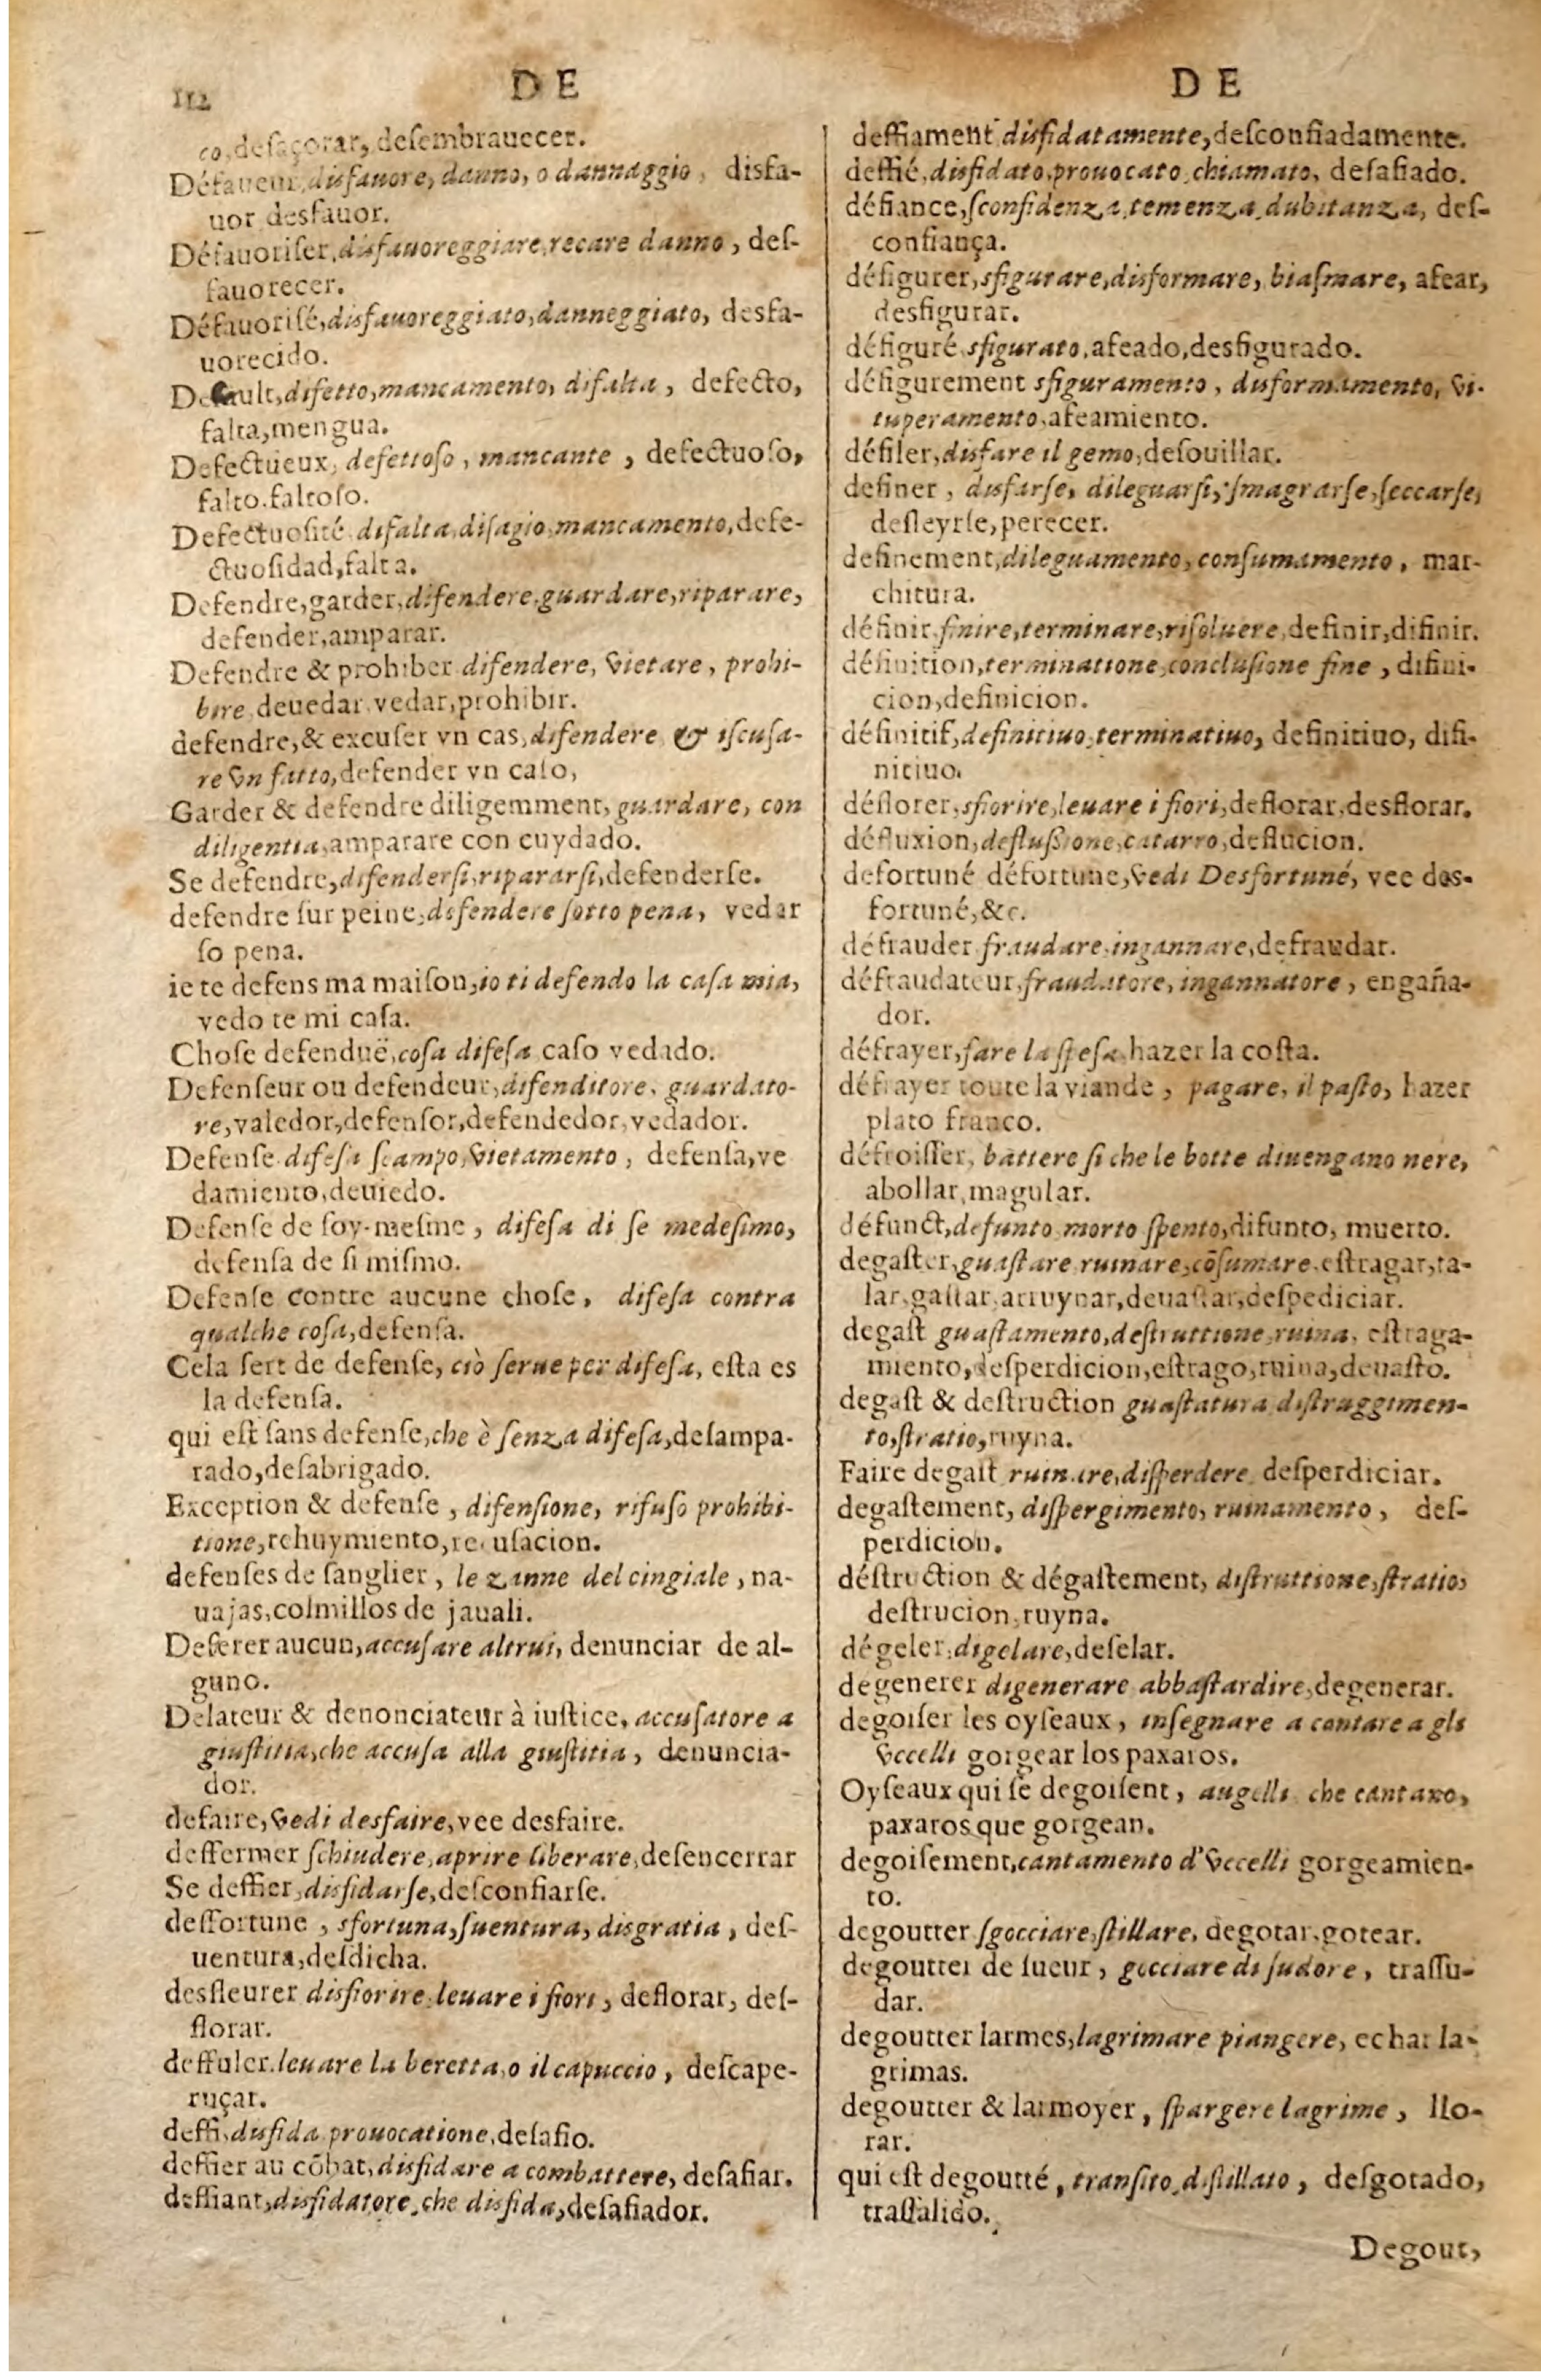 112
DE
co, desaçorar, desembrauecer.
Défaueur, disfauore, danno, o dannaggio, disfa-
uor desfauor.
Défauoriſer, disfauoreggiare, recare danno, deſ-
fauorecer.
Défauoriſé, disfauoreggiato, danneggiato, desfa-
uorecido.
Default, difetto, mancamento, difalta, defecto,
falta, mengua.
Defectueux, defettoſo, mancante, defectuoſo,
falto. faltoſo.
Defectuoſité difalta, diſagio, mancamento, defe-
ctuoſidad, falta.
Defendre, garder, difendere, guardare, riparare,
defender, amparar.
Defendre & prohiber difendere, vietare, prohi-
bire deuedar vedar, prohibir.
defendre, & excuſer vn cas, difendere & iſcuſa-
re vn fatto, defender vn caſo,
Garder & defendre diligemment, guardare, con
diligentia, amparare con cuydado.
Se defendre, difenderſi, ripararſi, defenderſe.
defendre ſur peine, difendere ſotto pena, vedar
ſo pena.
ie te defens ma maiſon, io ti defendo la caſa mia,
vedo te mi caſa.
Choſe defenduë, coſa difeſa caſo vedado.
Defenſeur ou defendeur, difenditore, guardato-
re, valedor, defenſor, defendedor, vedador.
Defenſe difeſa ſcampo, vietamento, defenſa, ve
damiento, deuiedo.
Defenſe de ſoy-meſme, difeſa di ſe medeſimo,
defenſa de ſi miſmo.
Defenſe contre aucune choſe, difeſa contra
qualche coſa, defenſa.
Cela ſert de defenſe, ciò ſerue per difeſa, eſta es
la defenſa.
qui eſt ſans defenſe, che è ſenza difeſa, deſampa-
rado, deſabrigado.
Exception & defenſe, difenſione, rifuſo prohibi-
tione, rehuymiento, recuſacion.
defenſes de ſanglier, le zanne del cingiale, na-
uajas, colmillos de jauali.
Deferer aucun, accuſare altrui, denunciar de al-
guno.
Delateur & denonciateur à iuſtice, accuſatore a
giuſtitia, che accuſa alla giuſtitia, denuncia-
dor.
defaire, vedi desfaire, vee desfaire.
deffermer ſchiudere, aprire liberare, deſencerrar
Se deffier, disfidarſe, deſconfiarſe.
deffortune, sfortuna, ſuentura, disgratia, deſ-
uentura, deſdicha.
desfleurer disfiorire, leuare i fiori, deflorar, deſ-
florar.
deffuler, leuare la beretta, o il capuccio, deſcape-
ruçar.
deffi, disfida prouocatione, deſafio.
deffier au cõbat, disfidare a combattere, deſafiar.
deffiant, disfidatore, che disfida, deſafiador.
DE
deffiament disfidatamente, deſconfiadamente.
deffié, disfidato, prouocato, chiamato, deſafiado.
défiance, ſconfidenza, temenza, dubitanza, deſ-
confiança.
défigurer, sfigurare, disformare, biaſmare, afear,
desfigurar.
défiguré, sfigurato, afeado, desfigurado.
défigurement sfiguramento, disformamento, vi-
tuperamento, afeamiento.
défiler, disfare il gemo, deſouillar.
definer, disfarſe, dileguarſi, ſmagrarſe, ſeccarſe,
desleyrſe, perecer.
definement, dileguamento, conſumamento, mar-
chitura.
définir, finire, terminare, riſoluere, definir, difinir.
définition, terminatione, concluſione fine, difini-
cion, definicion.
définitif, definitiuo, terminatiuo, definitiuo, difi-
nitiuo.
déflorer, sfiorire, leuare i fiori, deflorar, desflorar.
défluxion, defluſsione, catarro, deflucion.
defortuné défortune, vedi Desfortuné, vee des-
fortuné, &c.
défrauder fraudare, ingannare, defraudar.
défraudateur, fraudatore, ingannatore, engaña-
dor.
défrayer, fare la ſpeſa, hazer la coſta.
défrayer toute la viande, pagare, il paſto, hazer
plato franco.
défroiſſer, battere ſi che le botte diuengano nere,
abollar, magular.
défunct, defunto morto ſpento, difunto, muerto.
degaſter, guaſtare ruinare, cõſumare, eſtragar, ta-
lar, gaſtar, arruynar, deuaſtar, deſpediciar.
degaſt guaſtamento, deſtruttione, ruina, eſtraga-
miento, deſperdicion, eſtrago, ruina, deuaſto.
degaſt & deſtruction guaſtatura diſtruggimen-
to, ſtratio, ruyna.
Faire degaſt ruinare, diſperdere deſperdiciar.
degaſtement, diſpergimento, ruinamento, deſ-
perdicion.
déſtruction & dégaſtement, diſtruttione, ſtratio,
deſtrucion, ruyna.
dégeler, digelare, deſelar.
degenerer digenerare abbaſtardire, degenerar.
degoiſer les oyſeaux, inſegnare a cantare a gli
vccelli gorgear los paxaros.
Oyſeaux qui ſe degoiſent, augelli che cantano,
paxaros que gorgean.
degoiſement, cantamento d'vccelli gorgeamien-
to.
degoutter ſgocciare, ſtillare, degotar, gotear.
degoutter de ſueur, gocciare di ſudore, traſſu-
dar.
degoutter larmes, lagrimare piangere, echar la-
grimas.
degoutter & larmoyer, ſpargere lagrime, llo-
rar.
qui eſt degoutté, tranſito, diſtillato, deſgotado,
traſſalido.
Degout,